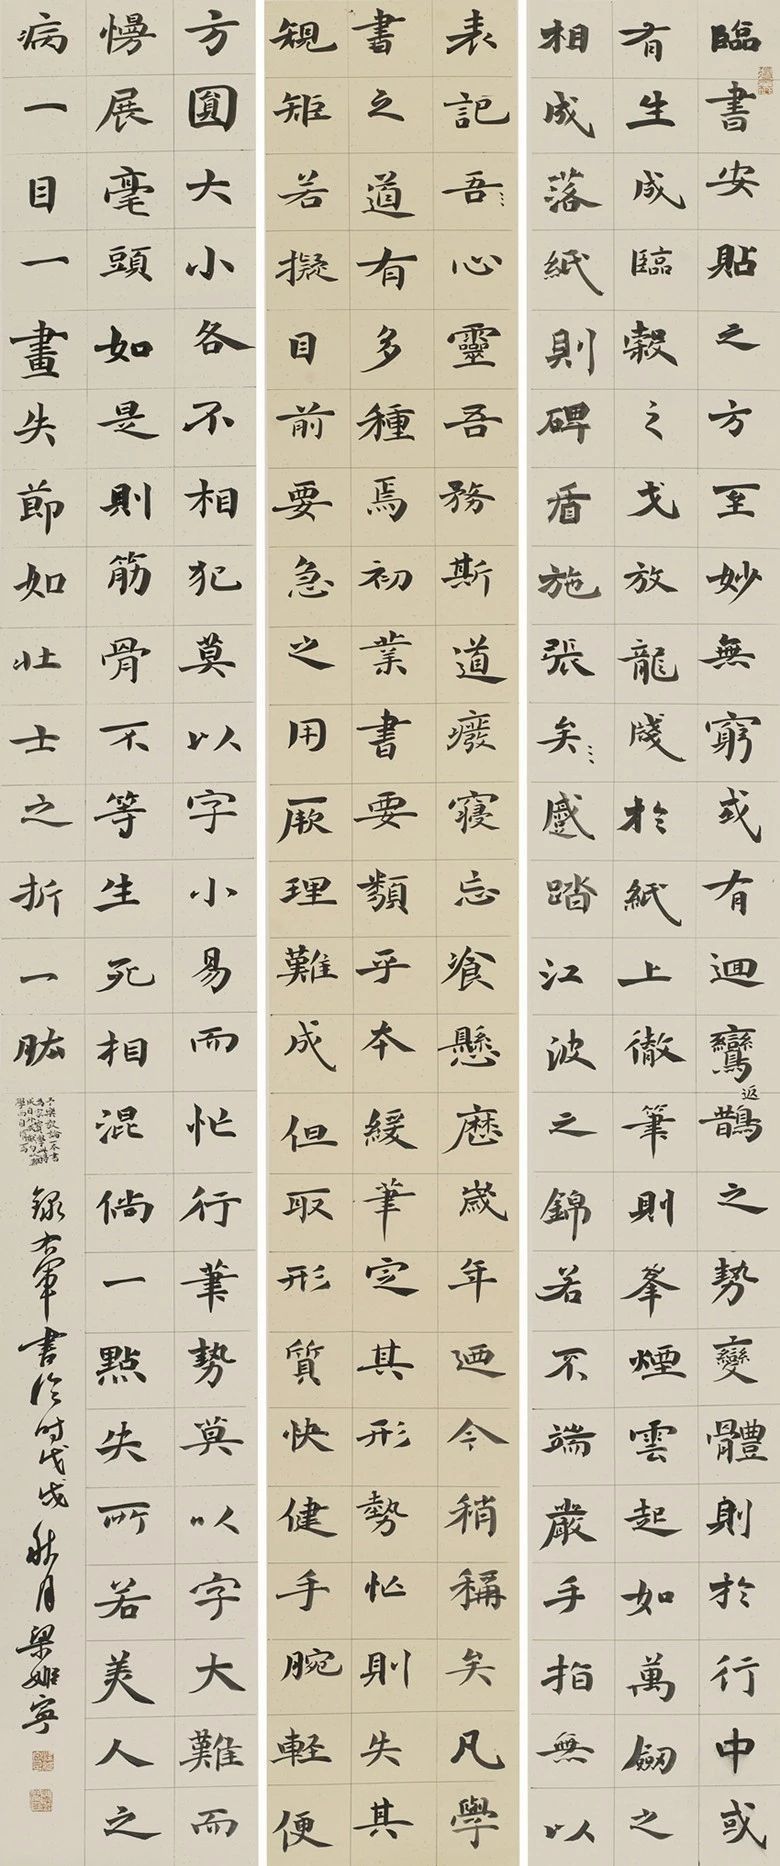 臨書安貼之方至妙無窮或有迴鸞返鵲之勢變體則於行中或
有生成臨榖之戈放龍牋於紙上徹筆則峯煙雲起如萬劒之
相成落紙則碑盾施張矣踏江波之錦若不端嚴手指無以
表記吾心靈吾務斯道廢寢忘飡懸歷歲年迺今稍稱矣凡學
書之道有多種焉初業書要類乎本緩筆定其形勢忙則失其
規矩若擬目前要急之用厥理難成但取形質快健手腕軽便
方圓大小各不相犯莫以字小易而忙行筆勢莫以字大難而
慢展毫頭如是則筋骨不等生死相混倘一點失所若美人之
病一目一畫失節如壯士之折一肱
錄右軍書論時戊戌秋月梁寧